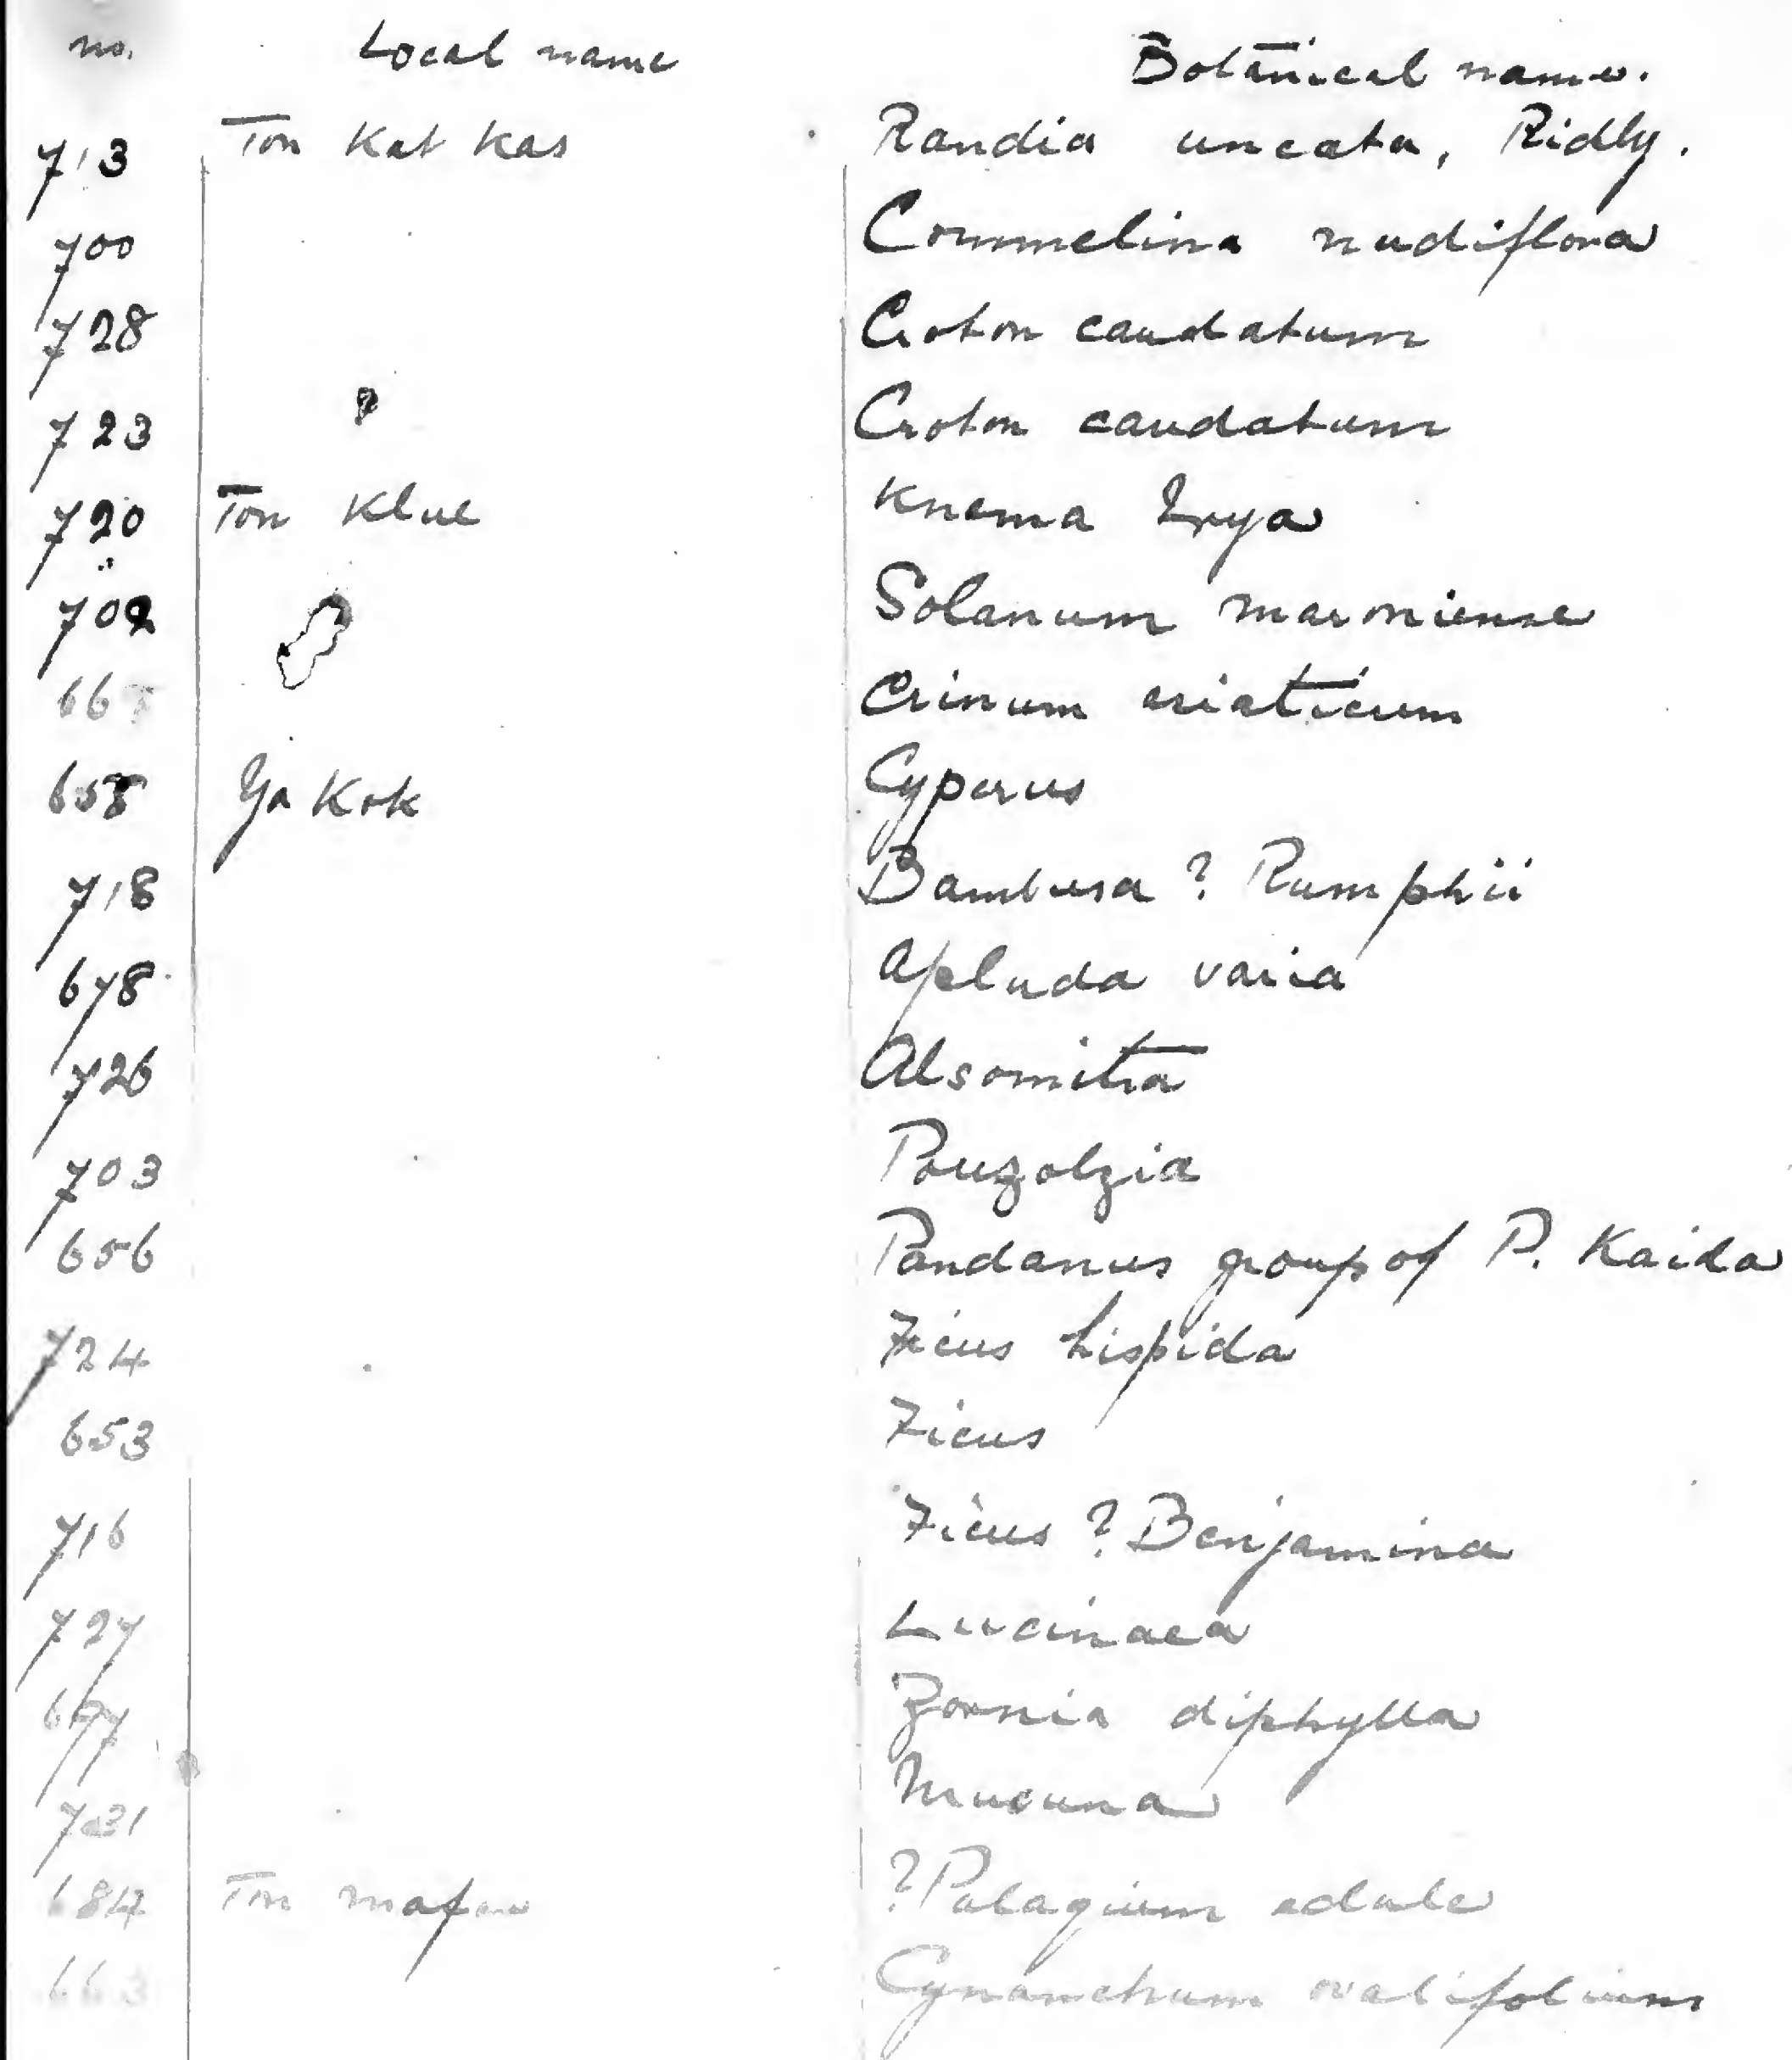 no. Local name Botanical name.
713 Ton Kat Kas Randia uncata, Ridly.
700 Commelina nudiflora
728 Croton caudatum
723 ? Croton caudatum
720 Ton Klue Knema
702 Solanum
Crinum asiaticum
658 Ya Kok Cyperus
718 Bambusa ? Rumphii
678 Apluda varia
726 Alsomitra
703 Pouzolzia
656 Pandanus group of P. Kaida
724 Ficus hispida
653 Ficus
716 Ficus ? Benjamina
727 Lucinaea
Zornia diphylla
731 Mucuna
684 Ton ? Palaquium
663 Cynanchum ovalifolium